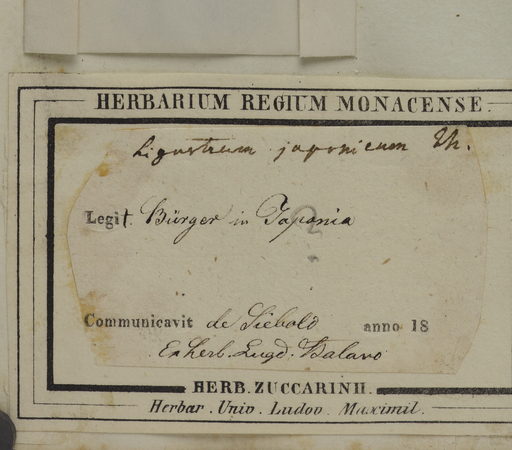 HERBARIUM REGIUM MONACENSE.
Ligustrum japonicum Th.
Legit Bürger in Japonia
?
Communicavit de Siebold anno 18
Ex herb. Lugd. Batavo
HERB. ZUCCARINII.
Herbar. Univ. Ludov. Maximil.